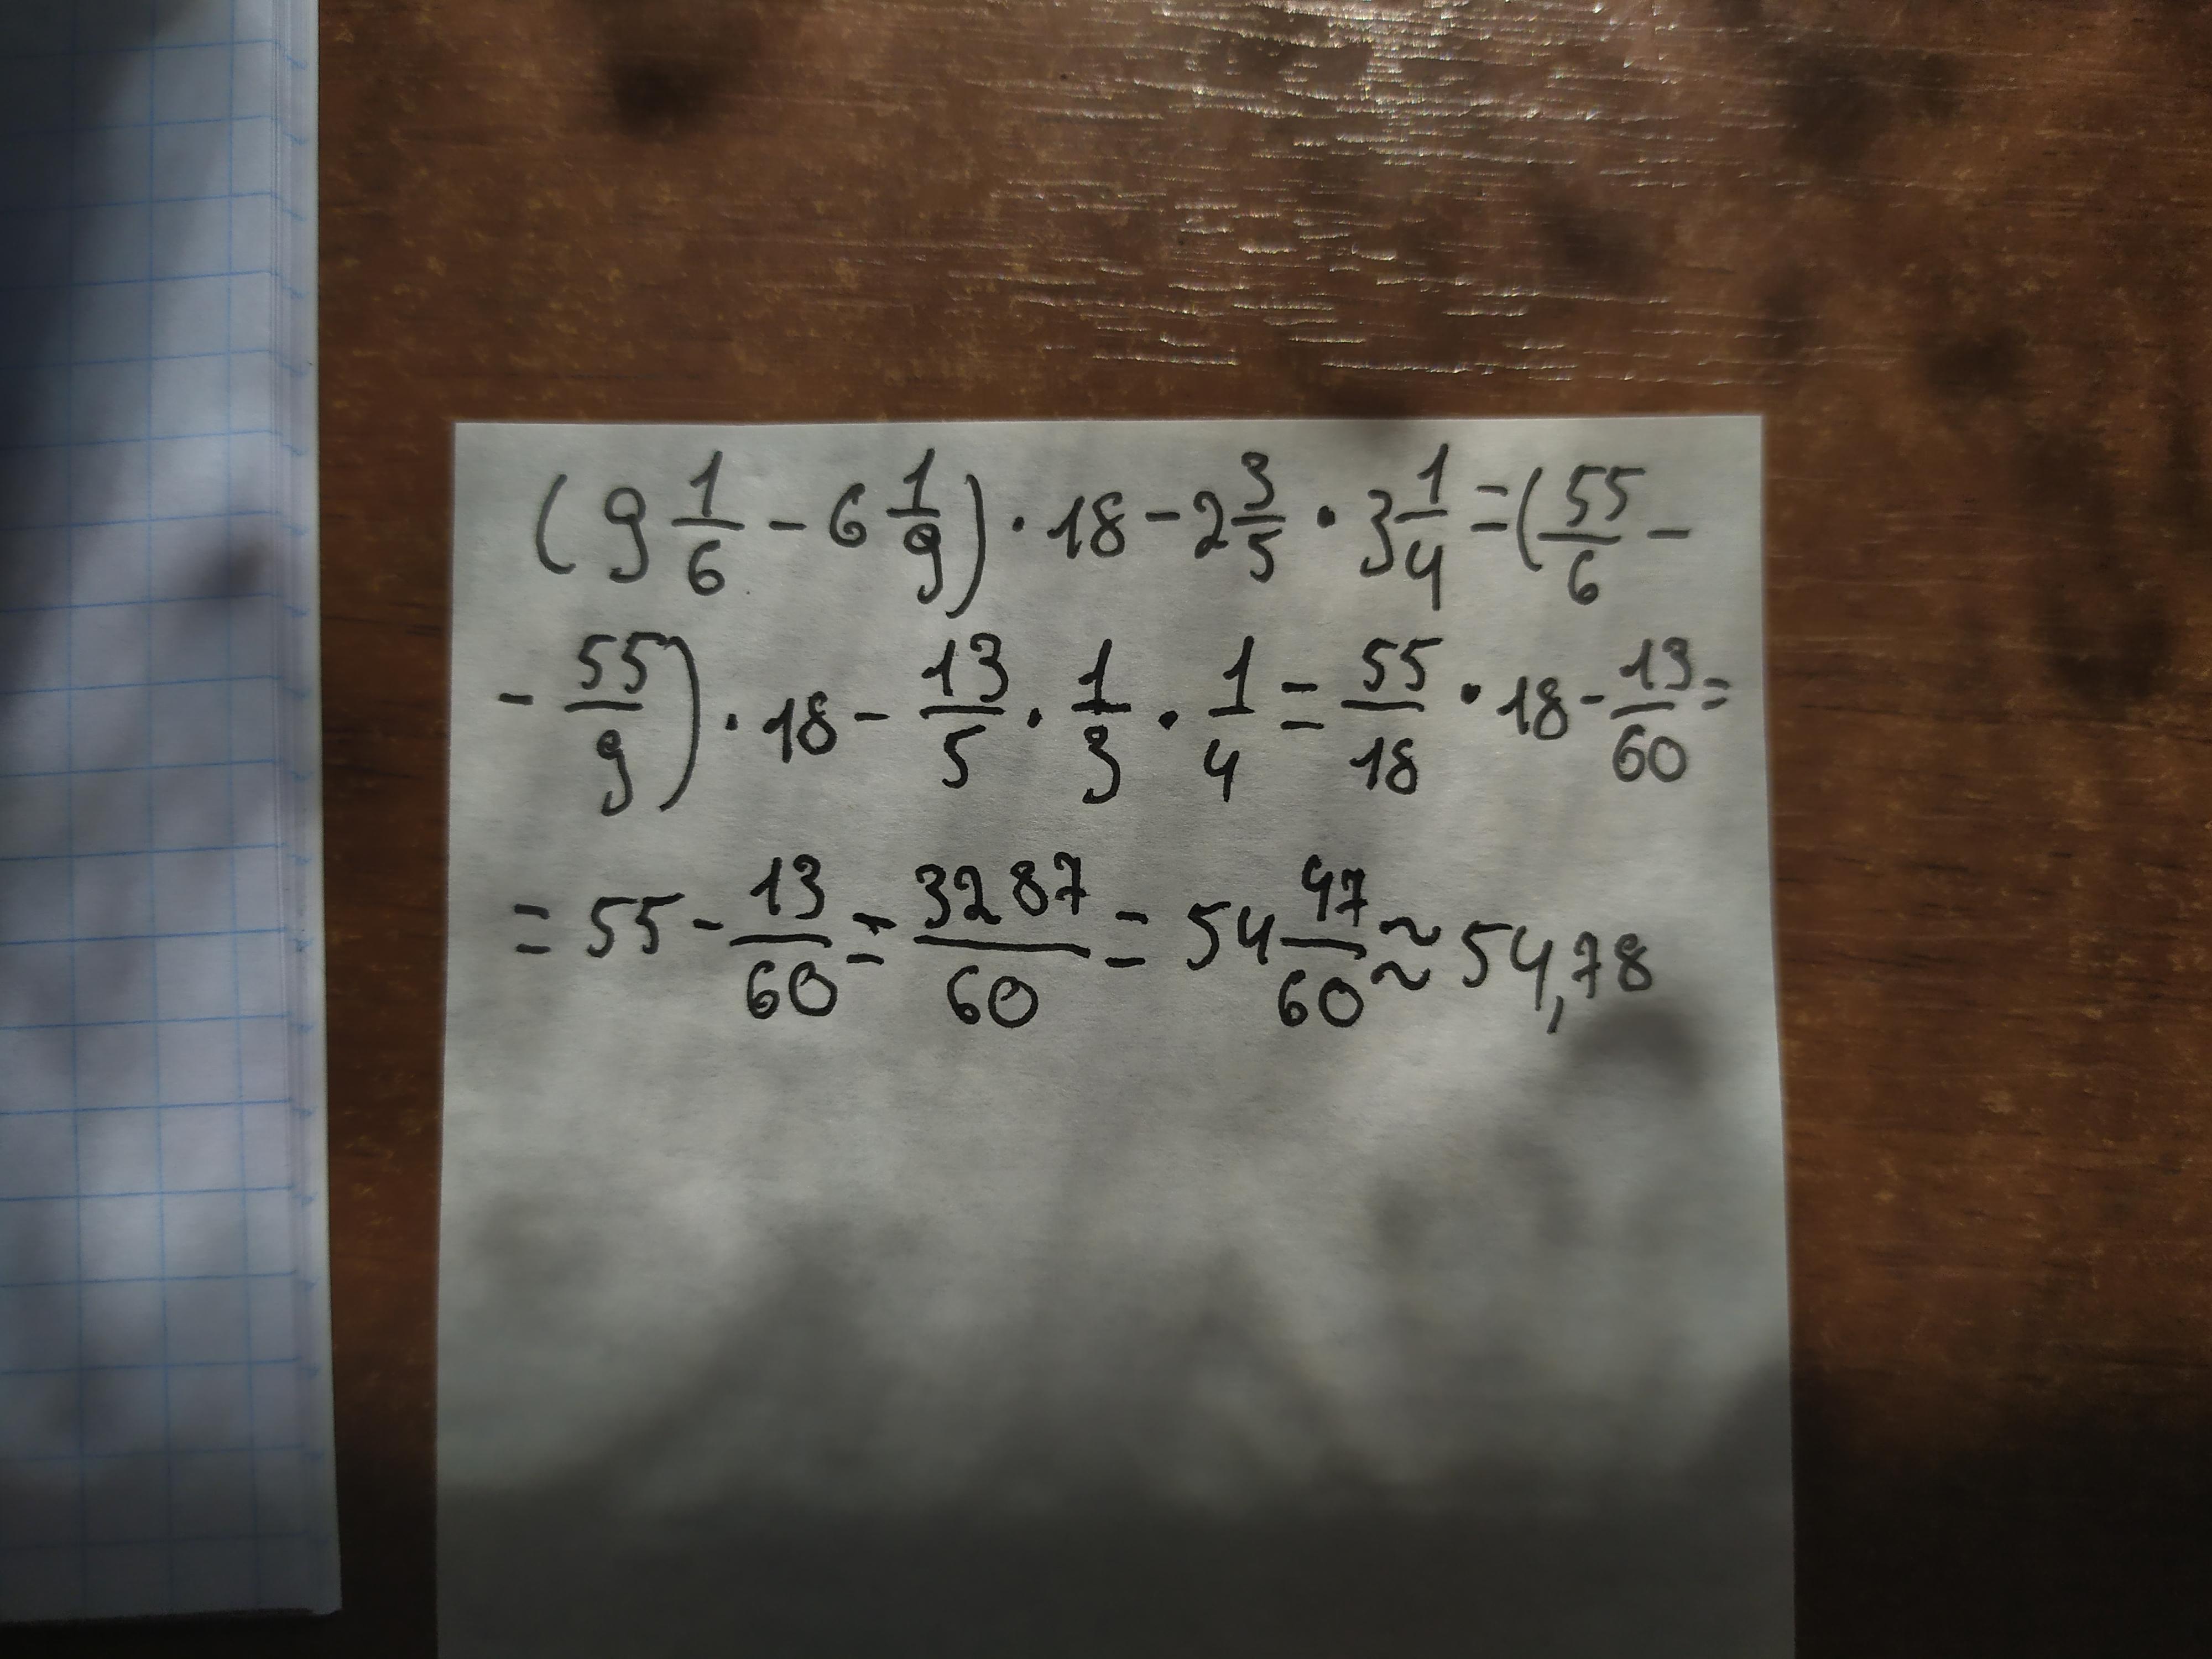 (9 1/6 - 6 1/9) · 18 - 2 3/5 · 3 1/4 = (55/6 -
- 55/9) · 18 - 13/5 · 1/3 · 1/4 = 55/18 · 18 - 13/60 =
= 55 - 13/60 = 3287/60 = 54 47/60 ≈ 54,78